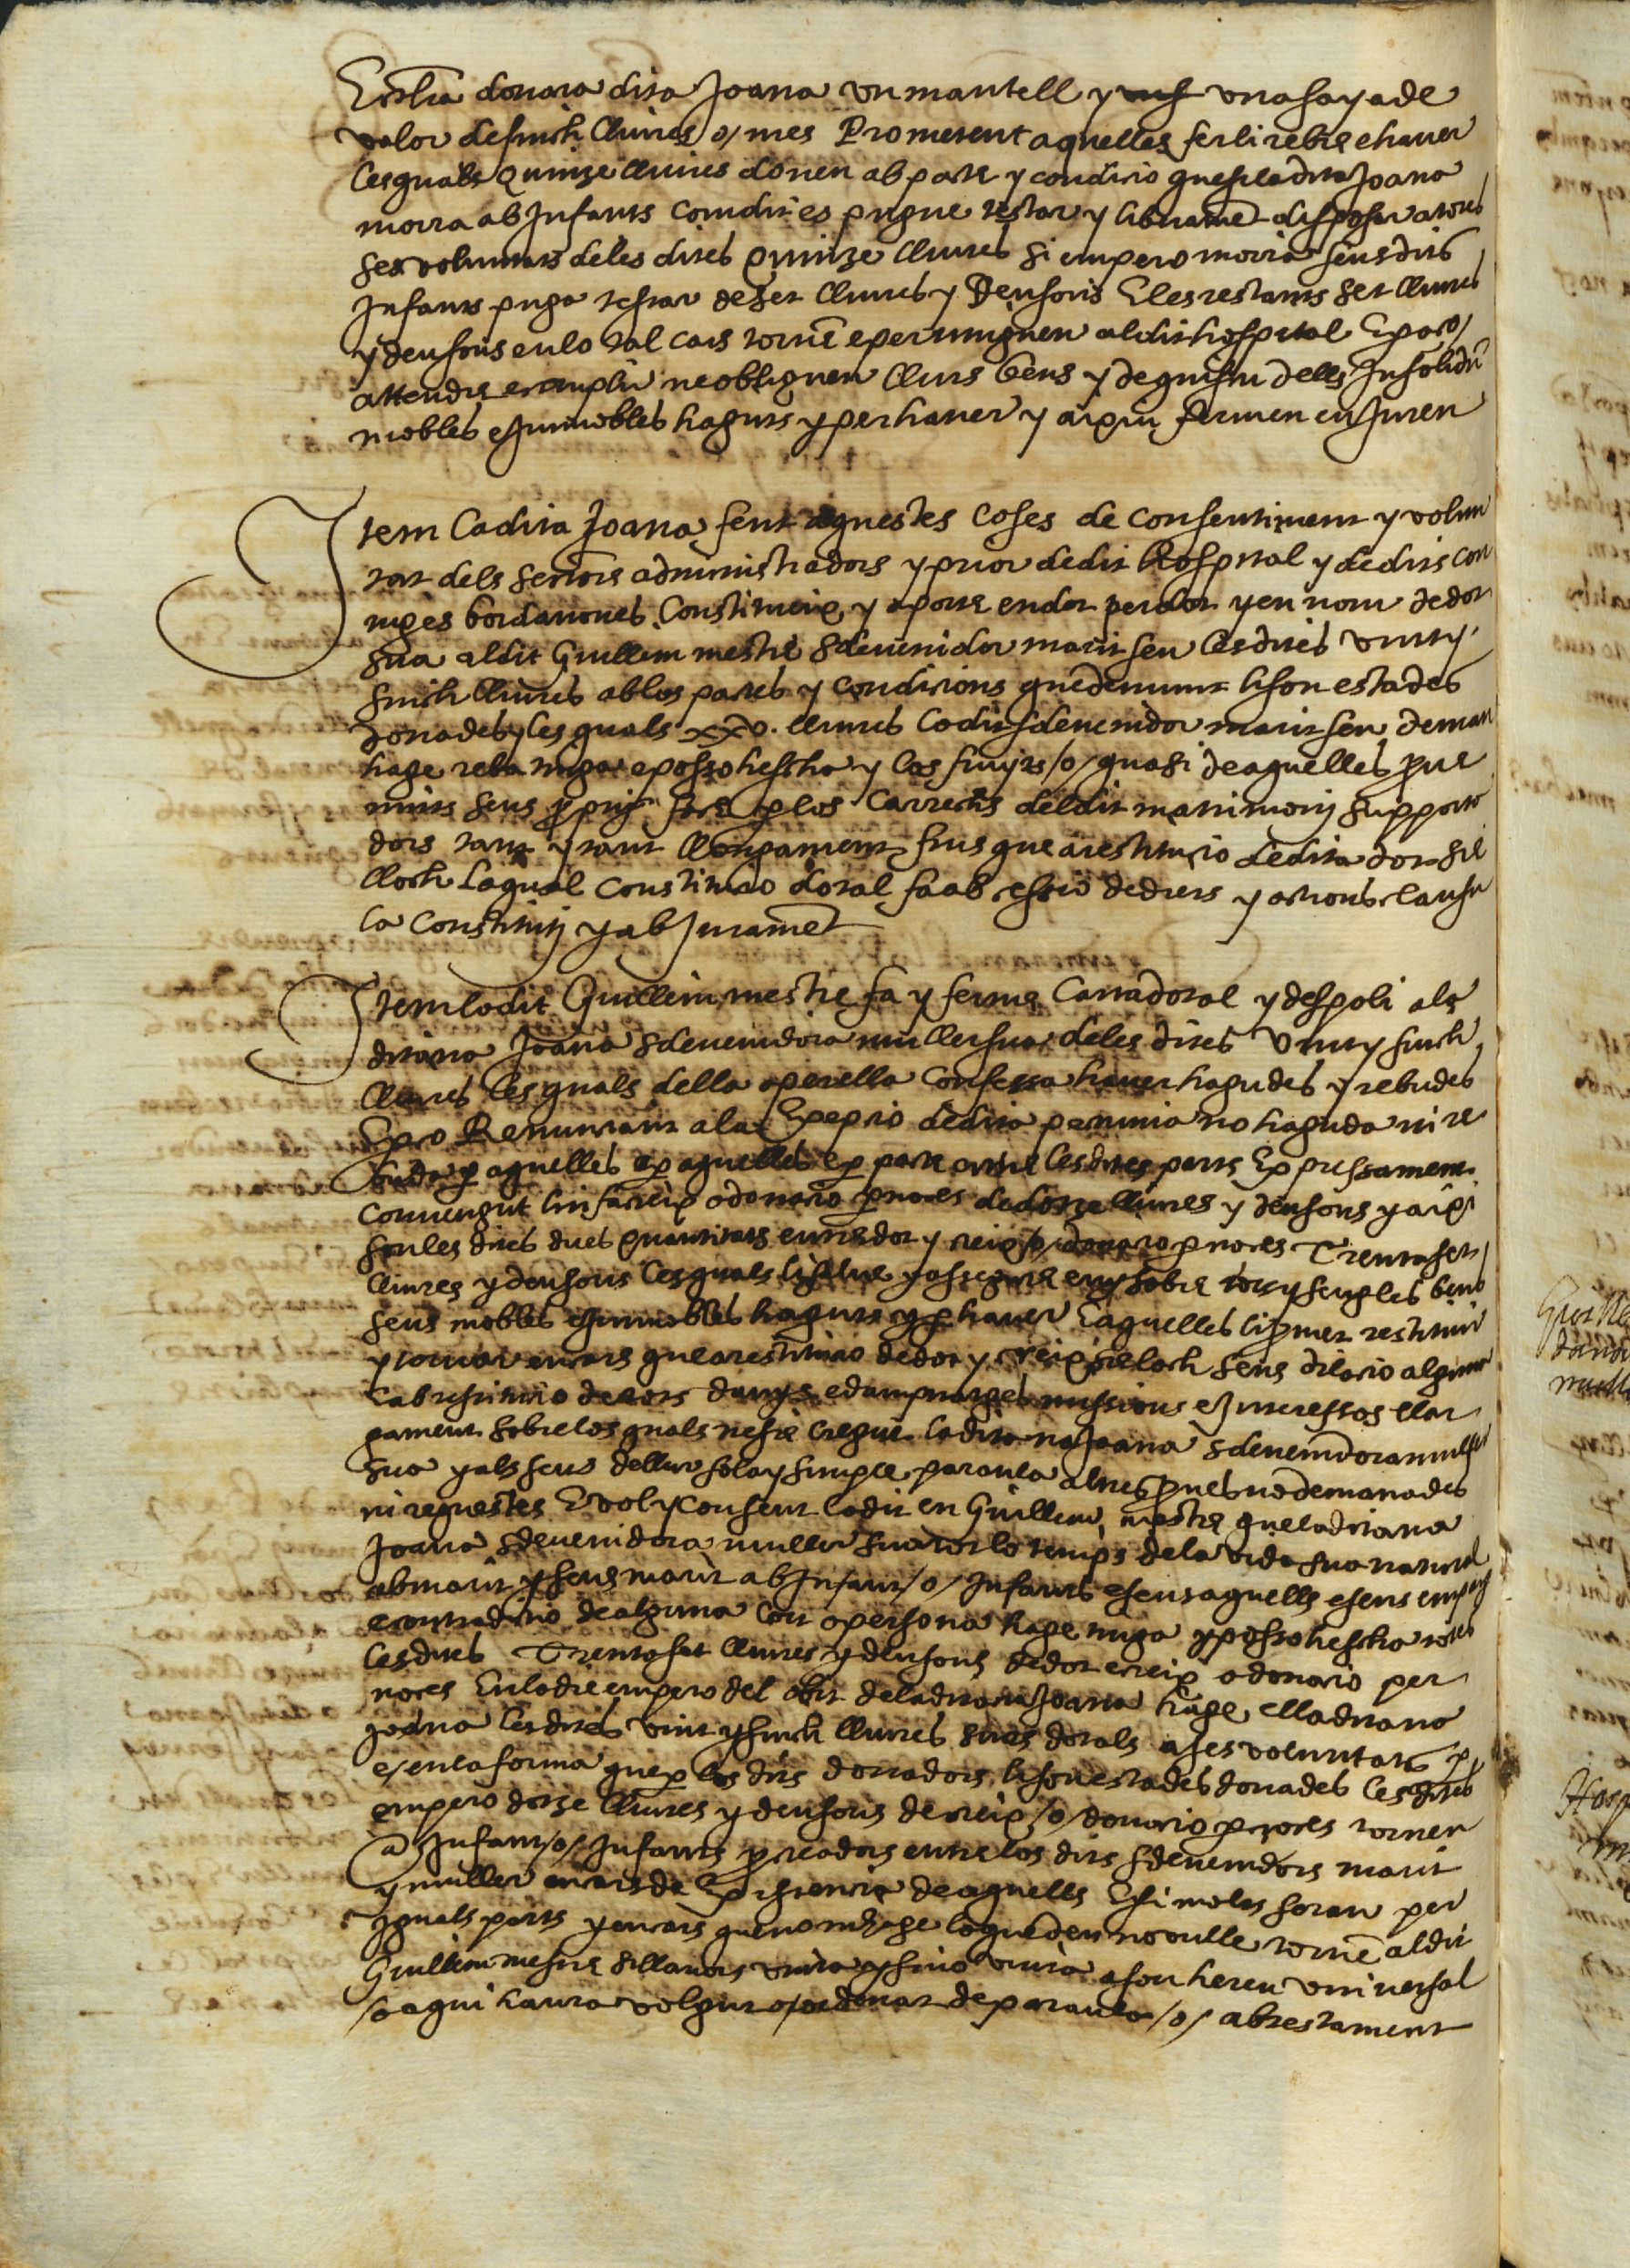 Ertlia donara dita Joana un mantell y una saya de
valor de sinch lliures /o/ mes Prometent aquelles ferli rebre e haver
les quals quinze lliures donen ab pacte y condicio que si la dita Joana
morra ab Infants com dit es pugue testar y liburamet disposar a totes
ses voluntats de les dites quinze lliures si empero morra sens dits
Infants puga testar de set lliures y deu sous E les restants set lliures
y deu sous en lo tal cas torne e pertunguen al dit hospital E paço
attendre e complir ne obliguen llurs bens y de quiscu dells Insolidu
mobles e Inmobles haguts y per haver y axiu fermen en Juren
Item la dita Joana fent aquestes coses de consentiment y volun
tat dels senors administradors y prior de dit Hospital y de dits con
iuges bordanoues Constitueix y aporte en dot per dot y en nom de dot
sua al dit Guillem mestre sdevenidor marit seu les dites vint y
sinch lliures ab los pactes y condicions que demunt li son estades
donades y les quals xxv. lliures lo dit sdevenidor marit seu deman
hage reba tinga e possohescha y los fruyts /o/ quasi de aquelles prue
nints seus propris fare p los carrechs del dit matrimonj supporta
dors tant y tant llongament fins que a restitucio de dita dot sie
lloch La qual constitucio dotal fa ab cessio de drets y actions clausu
la constitutj y ab Jurame
Item lo dit Guillem mestre fa y ferme Carta dotal y despoli a la
dita na Joana sdevenidora muller sua de les dites vint y sinch
lliures les quals della o per ella Confessa haver hagudes y rebudes
E pço Renunciant a la Excepcio de dita pecunia no haguda ni re
buda p aquelles e p aquelles e p pacte entre les dites parts Expressament
convengut lin fa creix o donacio p noces de dotze lliures y deu sous y axi
son les dites dues quantitats entre dot y creix /o/ donacio p noces Trenta set
lliures y deu sous les quals li salve y assegure en y sobre tots y sengles bens
seus mobles e Inmobles haguts y p haver E aquelles li pmet restituir
y tornar en cars que a restitucio de dot y creix sie loch sens dilacio alguna
e ab restitucio de tots danys e dampnatges missions e Interessos llar
gament sobre los quals ne sie cregut la dita na Joana sdevenidora muller
sua y als seus de llur sola y simple paraula altres proves no demanades
ni request es E vol y consent lo dit en Guillem mestre que la dita na
Joana sdevenidora muller sua tot lo temps de la vida sua natural
ab marit y sens marit ab Infant /o/ Infants e sens aquells e sens empaig
e contradictio de alguna cort o persona hage tinga y possohescha totes
les dites Trenta set lliures y deu sous de dot e creix o donacio per
noces En lo die empero del obit de la dita na Joana hage ella dita na
Joana les dites vint y sinch lliures suas dotals a ses voluntats p
e en la forma que p los dits donadors li son estades donades les dites
empero dotze lliures y deu sous de creix /o/ donacio p noces tornen
a Infant /o/ Infants procreadors entre los dits sdevenidors marit
y muller en cars de Existencia de aquells E si molts seran per
iguals parts y en cars que no ni hage lo que deu no vulle torne al dit
Guillem mestre si llavors viura y si no viura a son hereu universal
/o a qui haura volgut o ordenat de paraula /o/ ab testament